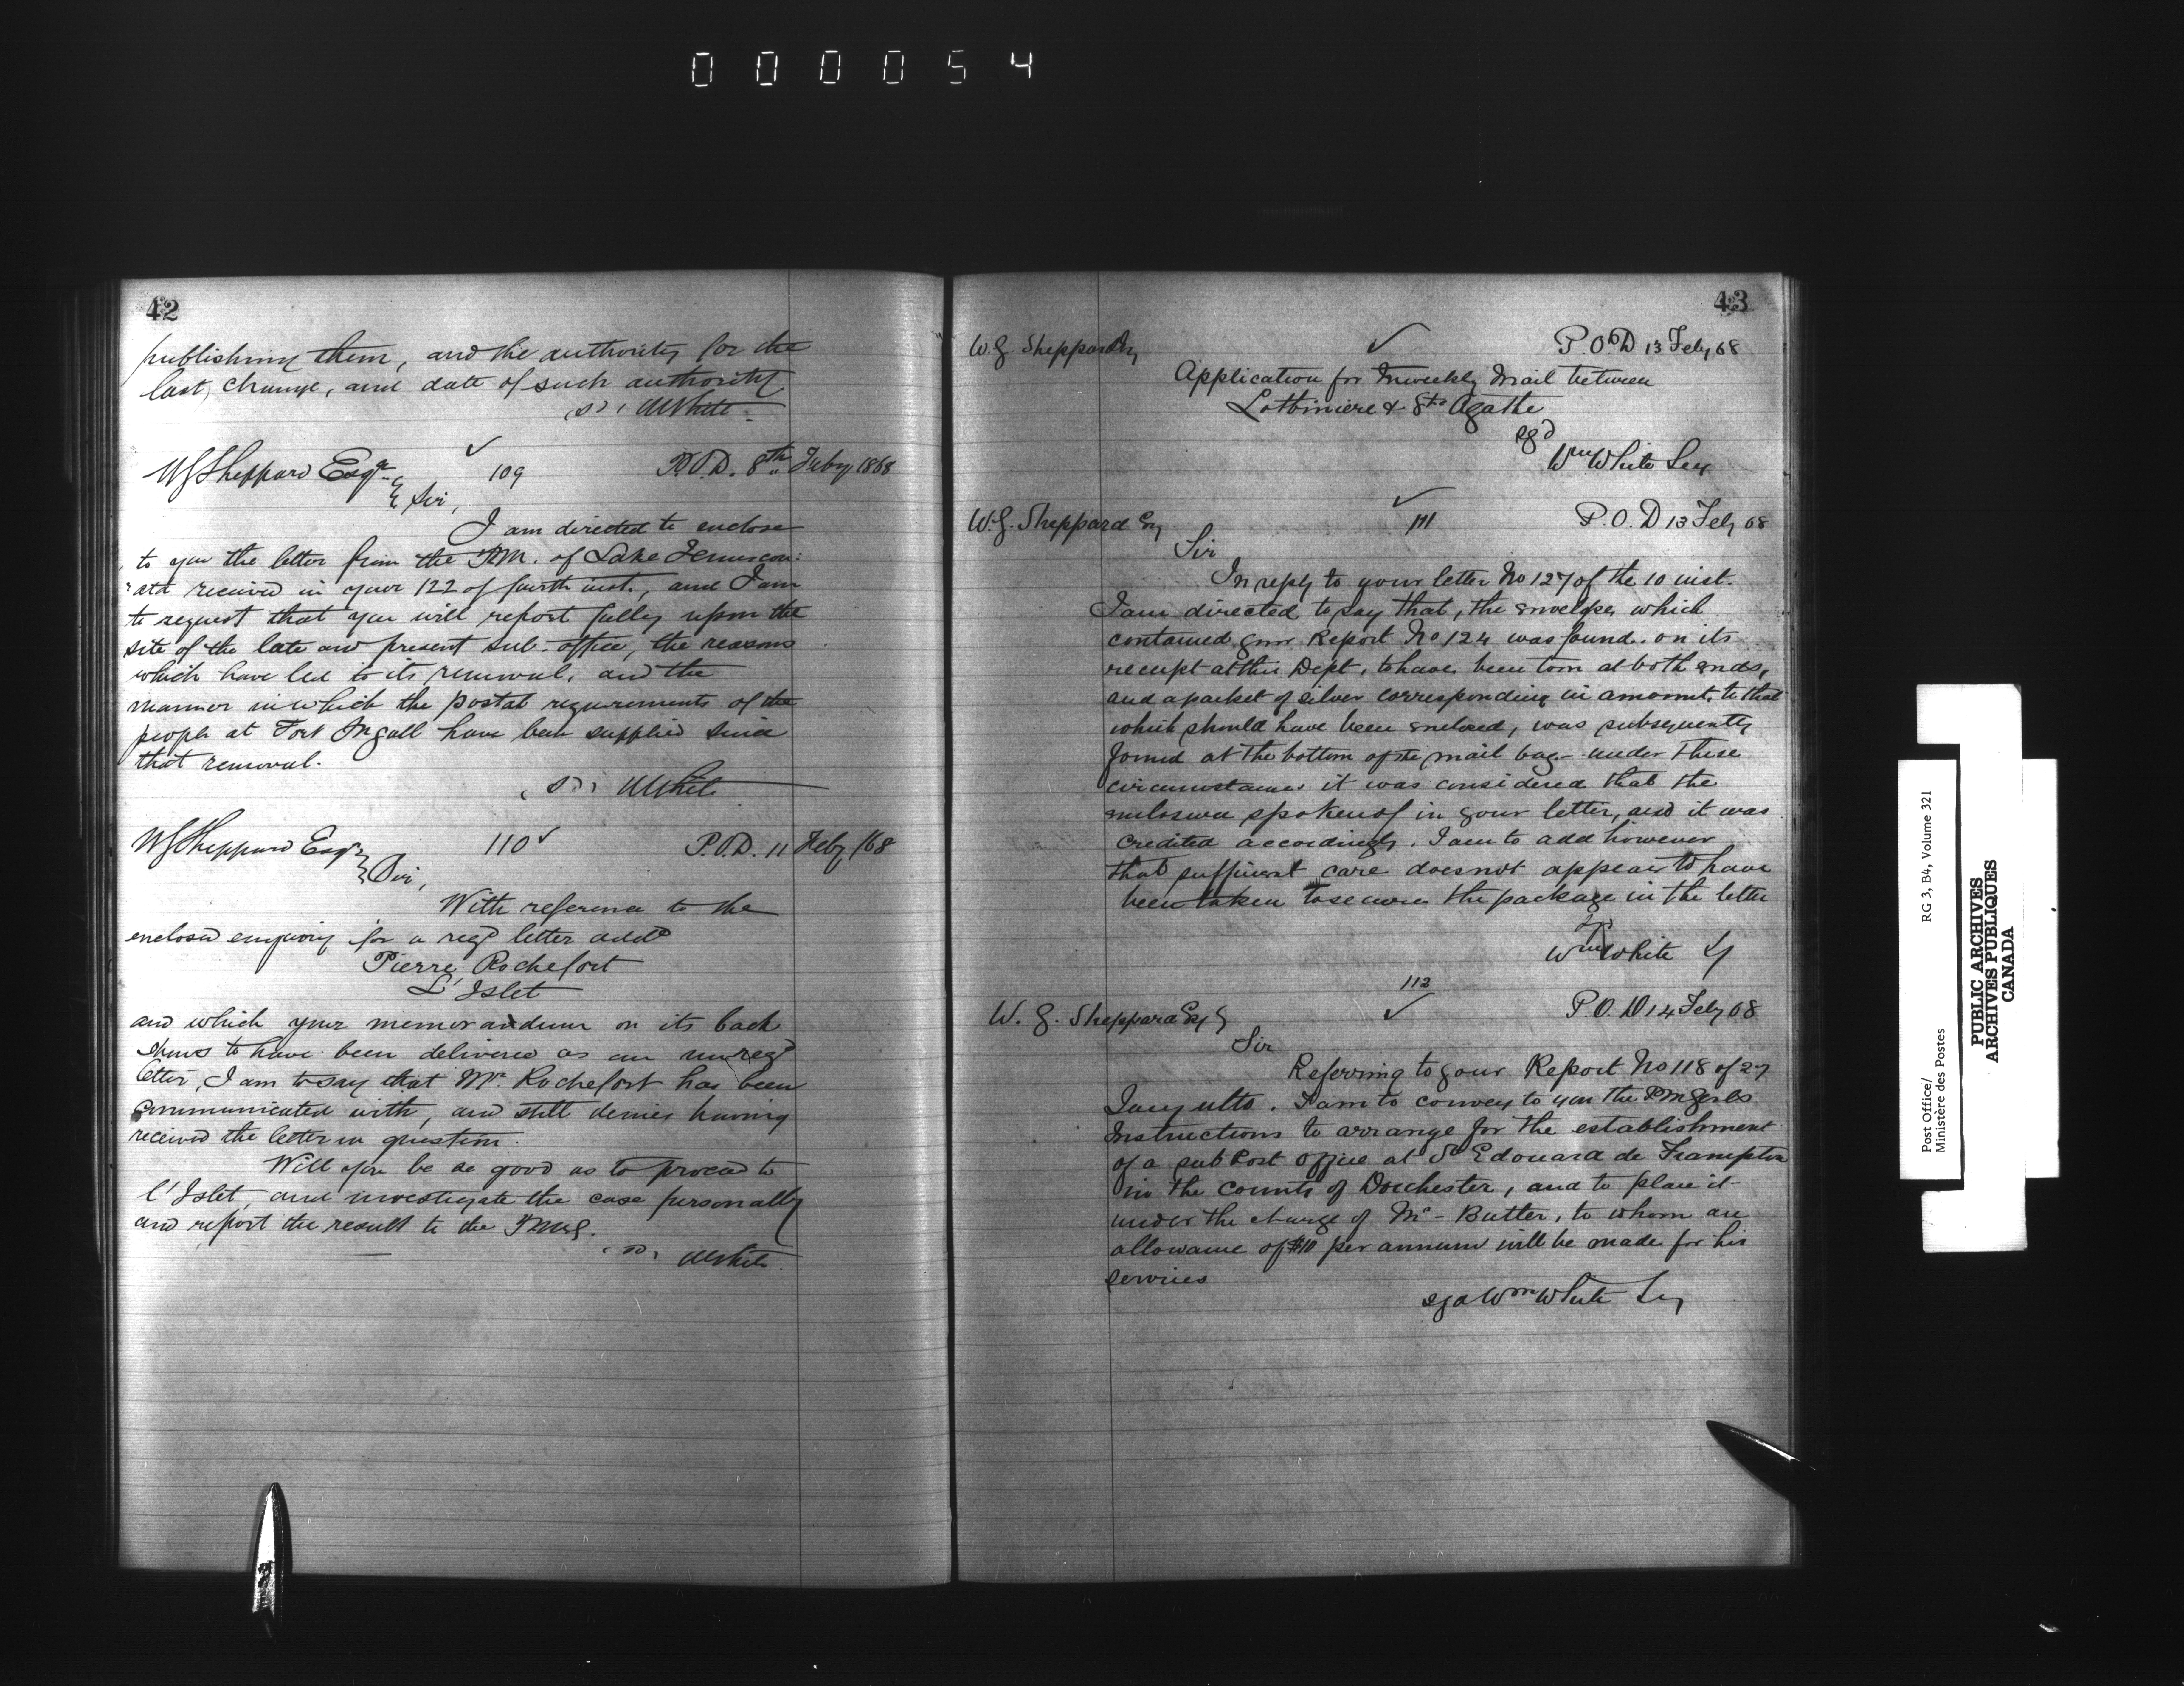 000054
42
publishing them, and the authority for the
last change, and date of such authority
(sd) WWhite
WGSheppard Esqre 109 P.O.D. 8th Feby 1868
Sir,
I am directed to enclose
to you the letter from the P.M. of Lake Temiscou:
:ata received in your 122 of fourth inst., and I am
to request that you will report fully upon the
site of the late and present sub-office, the reasons
which have led to its removal, and the
manner in which the postal requirements of the
people at Fort Ingall have been supplied since
that removal.
(sd) WWhite
WGSheppard Esqr 110 P.O.D. 11 Feby /68
Sir,
With reference to the
enclosed enquiry for a regd letter addd
Pierre Rochefort
L'Islet
and which your memorandum on its back
shews to have been delivered as an unregd
letter, I am to say that Mr. Rochefort has been
communicated with, and still denies having
received the letter in question.
Will you be so good as to proceed to
l'Islet, and investigate the case personally
and report the result to the PMG.
(sd) WWhite
43
W.G. Sheppard Esq P.O.D 13 Feby 68
Application for Triweekly Mail between
Lotbiniere & Ste Agathe
sgd
Wm White Secy
W.G. Sheppard Esq 111 P.O.D 13 Feby 68
Sir
In reply to your letter No 127 of the 10 inst.
I am directed to say that, the envelope, which
contained your Report No 124 was found. on its
receipt at this Dept, to have been torn at both ends,
and a packet of silver corresponding in amount, to that
which should have been enclosed, was subsequently
found at the bottom of the mail bag - under these
circumstances it was considered that the
enclosure spoken of in your letter, and it was
credited accordingly. I am to add however
that sufficient care does not appear to have
been taken to secure the package in the letter
Wm White Sy
112
W.G. Sheppard Esq P.O.D 14 Feby 68
Sir
Referring to your Report No 118 of 27
Jany ulto. I am to convey to you the PMGenls
Instructions to arrange for the establishment
of a sub Post Office at St Edouard de Frampton
in the county of Dorchester, and to place it
under the charge of Mr - Butler, to whom an
allowance of $10 per annum will be made for his
services
sgd Wm White Secy
Post Office/ RG 3, B4, Volume 321
Ministère des Postes
PUBLIC ARCHIVES
ARCHIVES PUBLIQUES
CANADA